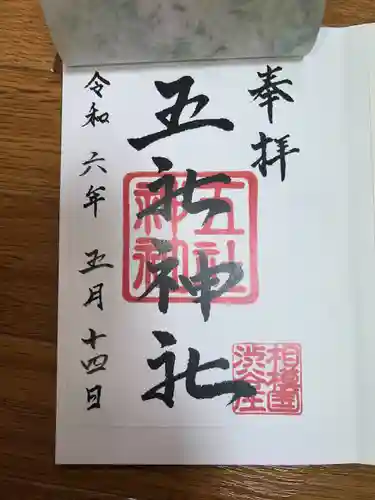 奉拝
五社神社
五社神社
相模国渋谷庄
令和六年五月十四日